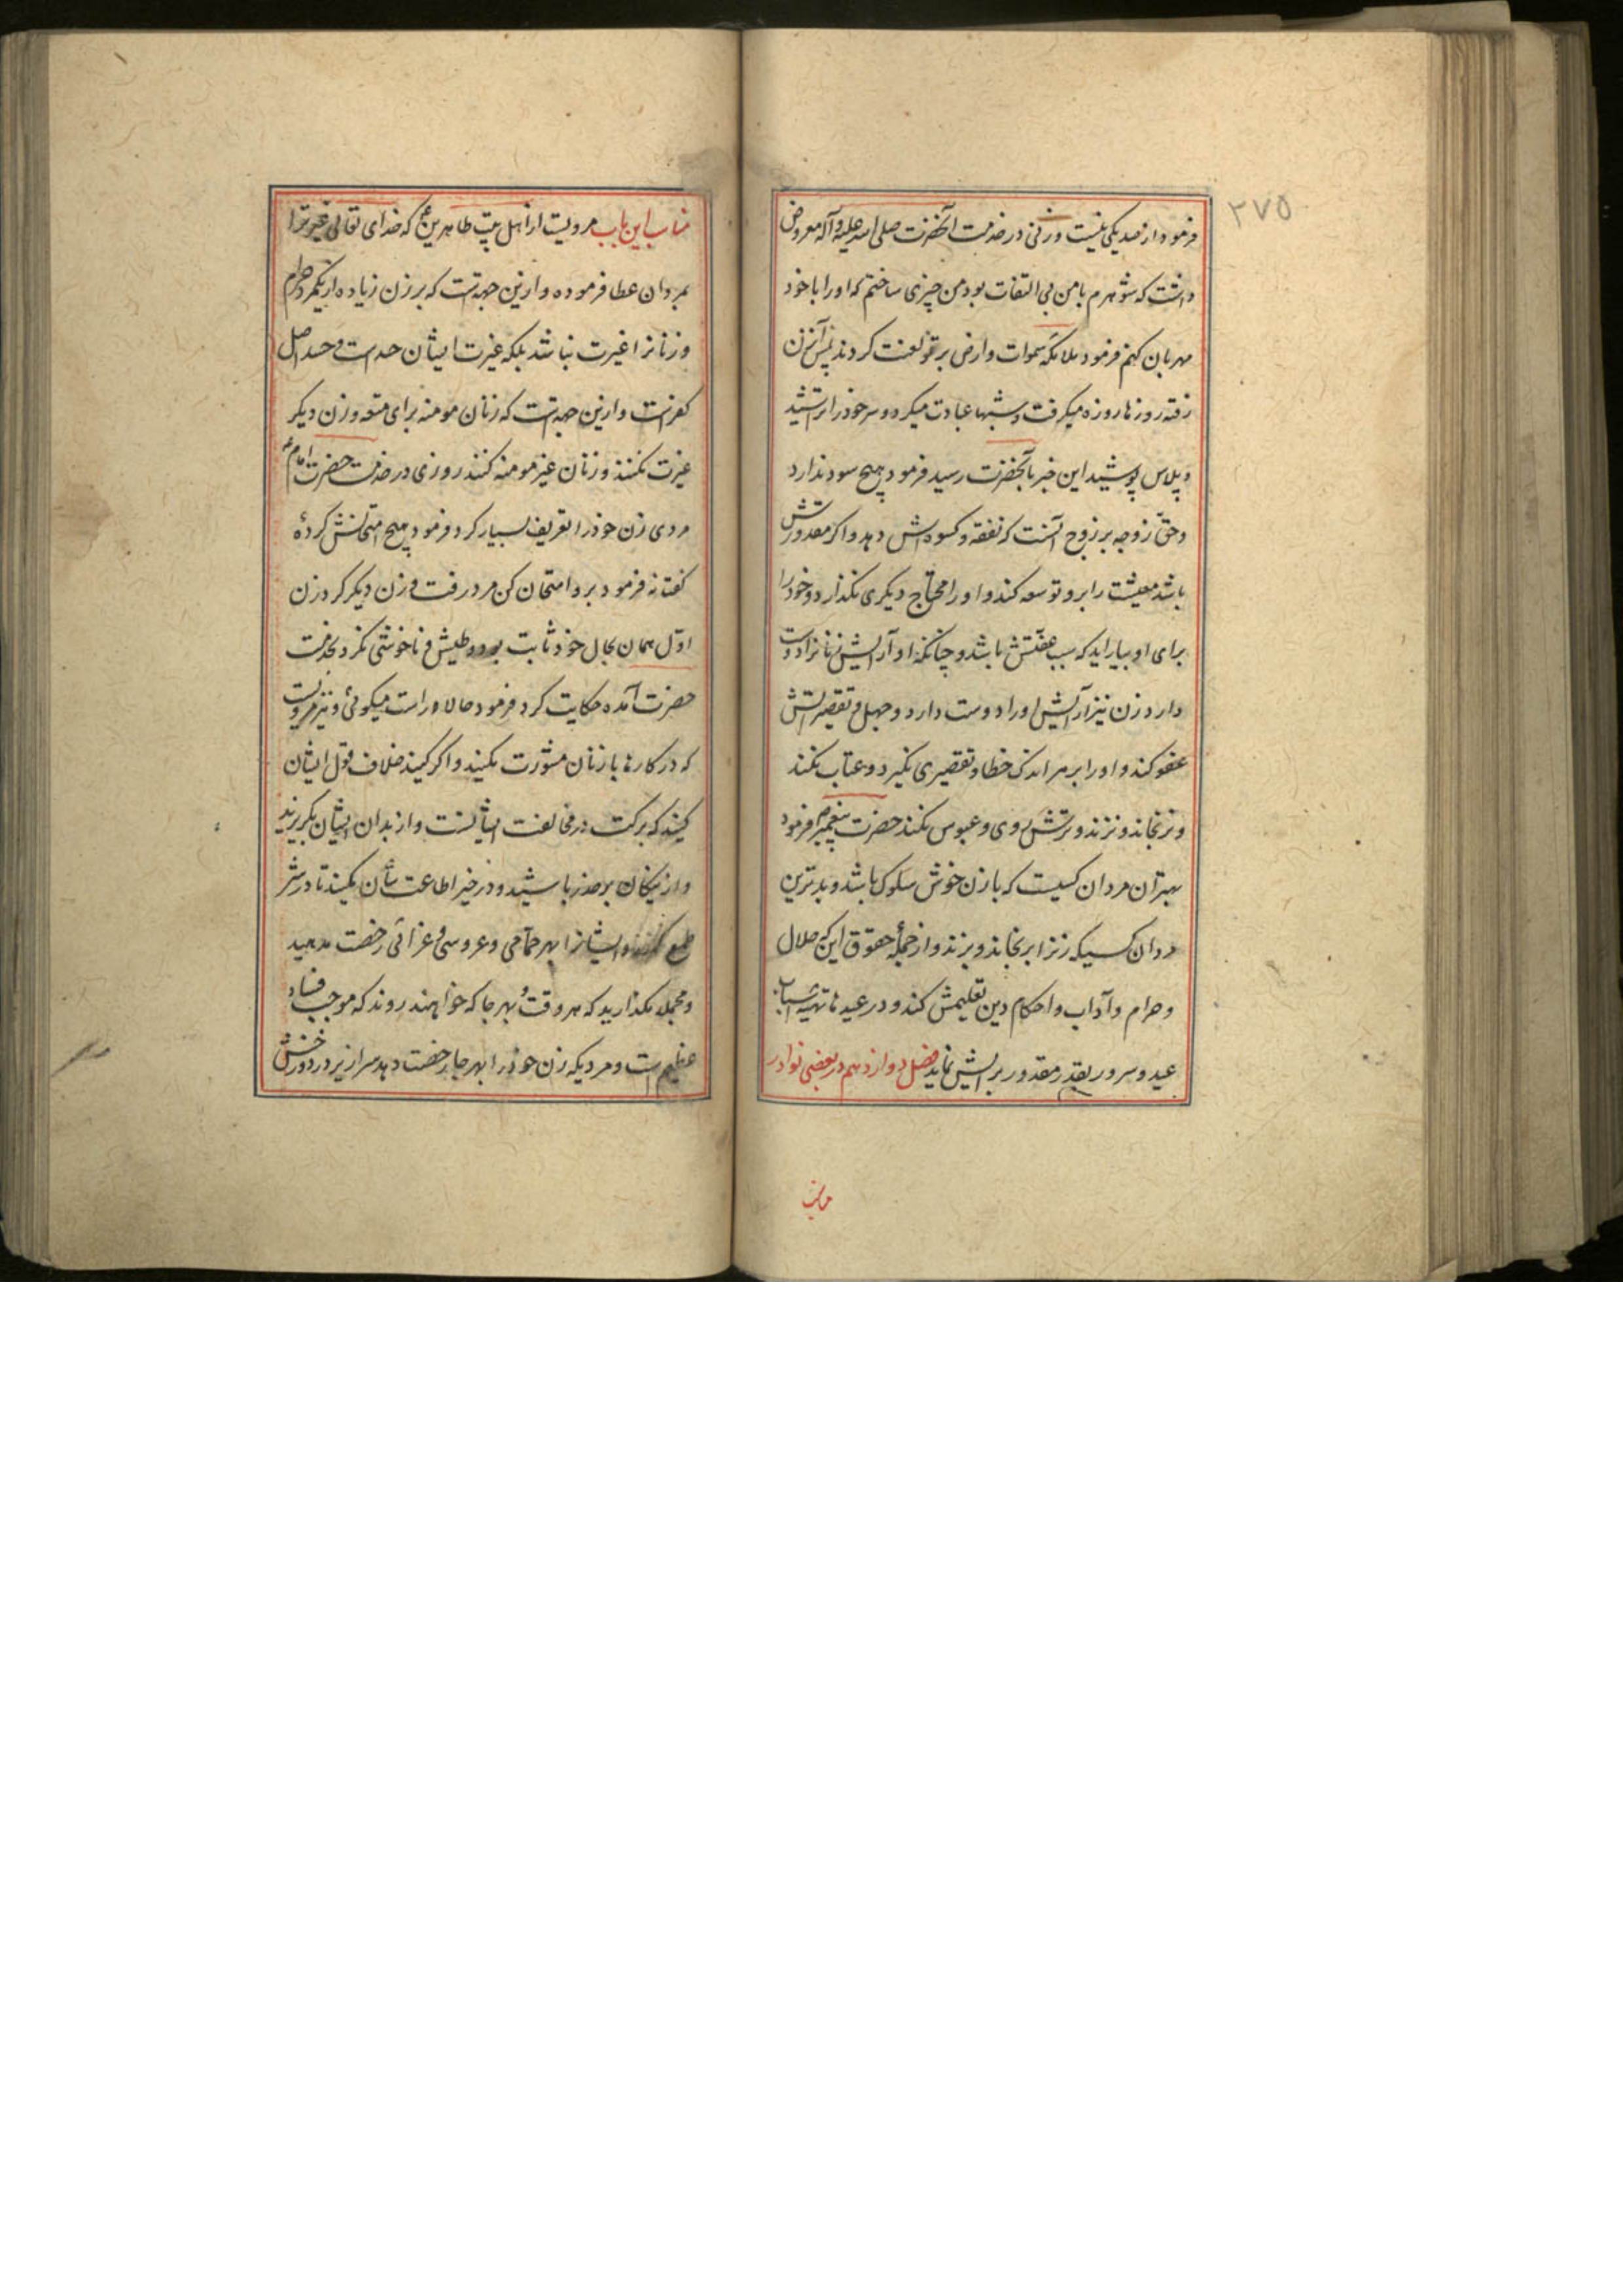 ۲۷۵
فرمود از صد یکی نیست و زنی در خدمت آنحضرت صلی الله علیه و آله معروض
داشت که شوهرم با من بی التفات بود من چیزی ساختم که او را با خود
مهربان کنم فرمود ملائکه سموات و ارض بر تو لعنت کردند پس آنزن
رفته روزها روزه میگرفت و شبها عبادت میکرد و سر خود را تراشید
و پلاس پوشید این خبر بآنحضرت رسید فرمود هیچ سود ندارد
و حق زوجه بر زوج آنست که نفقه و کسوه اش دهد و اگر مقدورش
باشد معیشت را برو توسعه کند و او را محتاج دیگری نگذارد و خود را
برای او بیاراید که سبب عفتش باشد و چنانکه او آرایش زنانرا دوست
دارد زن نیز آرایش او را دوست دارد و جهل و تقصیراتش
عفو کند و او را بر هر اندک خطا و تقصیری نگیرد و عتاب نکند
و نرنجاند و نزند و ترش روی و عبوس نکند حضرت پیغمبر ص فرمود
بهترین مردان کسیست که با زن خوش سلوک باشد و بدترین
مردان کسیکه زنرا برنجاند و بزند و از جمله حقوق این که حلال
و حرام و آداب و احکام دین تعلیمش کند و در عیدها تهیه اسباب
عید و سرور بقدر مقدور برایش نماید فصل دوازدهم در بعضی نوادر
مناسب
مناسب این باب مرویست از اهل بیت طاهرین ع که خدای تعالی غیرت را
بمردان عطا فرموده و ازین جهتست که بر زن زیاده از یکمرد حرام
و زنانرا غیرت نباشد بلکه غیرت ایشان حسدست و حسد اصل
کفرست و ازین جهتست که زنان مومنه برای متعه و زن دیگر
غیرت نکنند و زنان غیر مومنه کنند روزی در خدمت حضرت امام ع
مردی زن خود را تعریف بسیار کرد فرمود هیچ امتحانش کردۀ
گفت نه فرمود برو امتحان کن مرد رفت و زن دیگر کرد زن
اول همان بحال خود ثابت بود و طیش و ناخوشی نکرد بخدمت
حضرت آمده حکایت کرد فرمود حالا راست میگوئی و نیز مرویست
که در کارها با زنان مشورت نکنید و اگر کنید خلاف قول ایشان
کنید که برکت در مخالفت ایشانست و از بدان ایشان بگریزید
و از نیکان بر حذر باشید و در خیر اطاعت شان نکنید تا در شر
طمع نکنند و ایشانرا بهر حمامی و عروسی و عزائی رخصت مدهید
و مجملا نگذارید که هر وقت و بهر جا که خواهند روند که موجب فساد
عظیم است و مردیکه زن خود را بهر جا رخصت دهد سرازیر در دوزخش